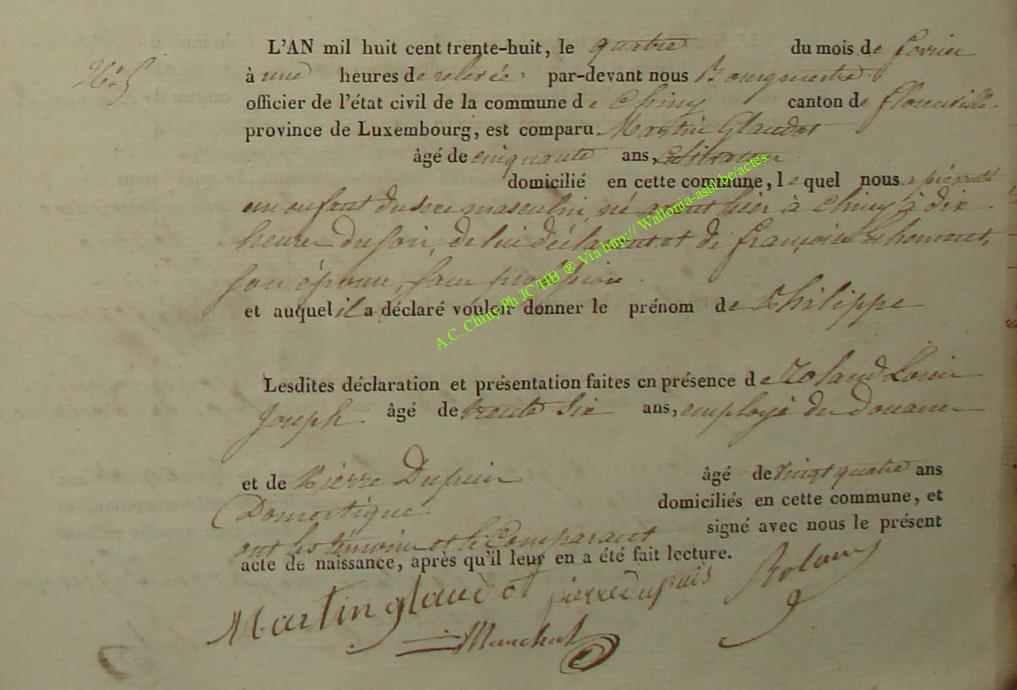 N° 5
L'AN mil huit cent trente-huit, le quatre du mois de fevrier
à une heures de relevée, par-devant nous Bourgmestre
officier de l'état civil de la commune de Chiny canton de florenville
province de Luxembourg, est comparu Martin Glaudot
âgé de cinquante ans,
domicilié en cette commune, lequel nous a présenté
un enfant du sexe masculin, né avant hier à Chiny à dix
heures du soir, de lui déclarant et de françoise
son épouse, sans profession
et auquel il a déclaré vouloir donner le prénom de Philippe
A.C. Chiny Ph JC/HB ® Via http:// Wallonia-asbl.be/actes
Lesdites déclaration et présentation faites en présence de Roland Louis
Joseph âgé de trente six ans, employé des douanes
et de Pierre Dupuis âgé de vingt quatre ans
Domestique domiciliés en cette commune, et
ont les témoins et le Comparant signé avec nous le présent
acte de naissance, après qu'il leur en a été fait lecture.
Martin glaudot pierre dupuis Roland